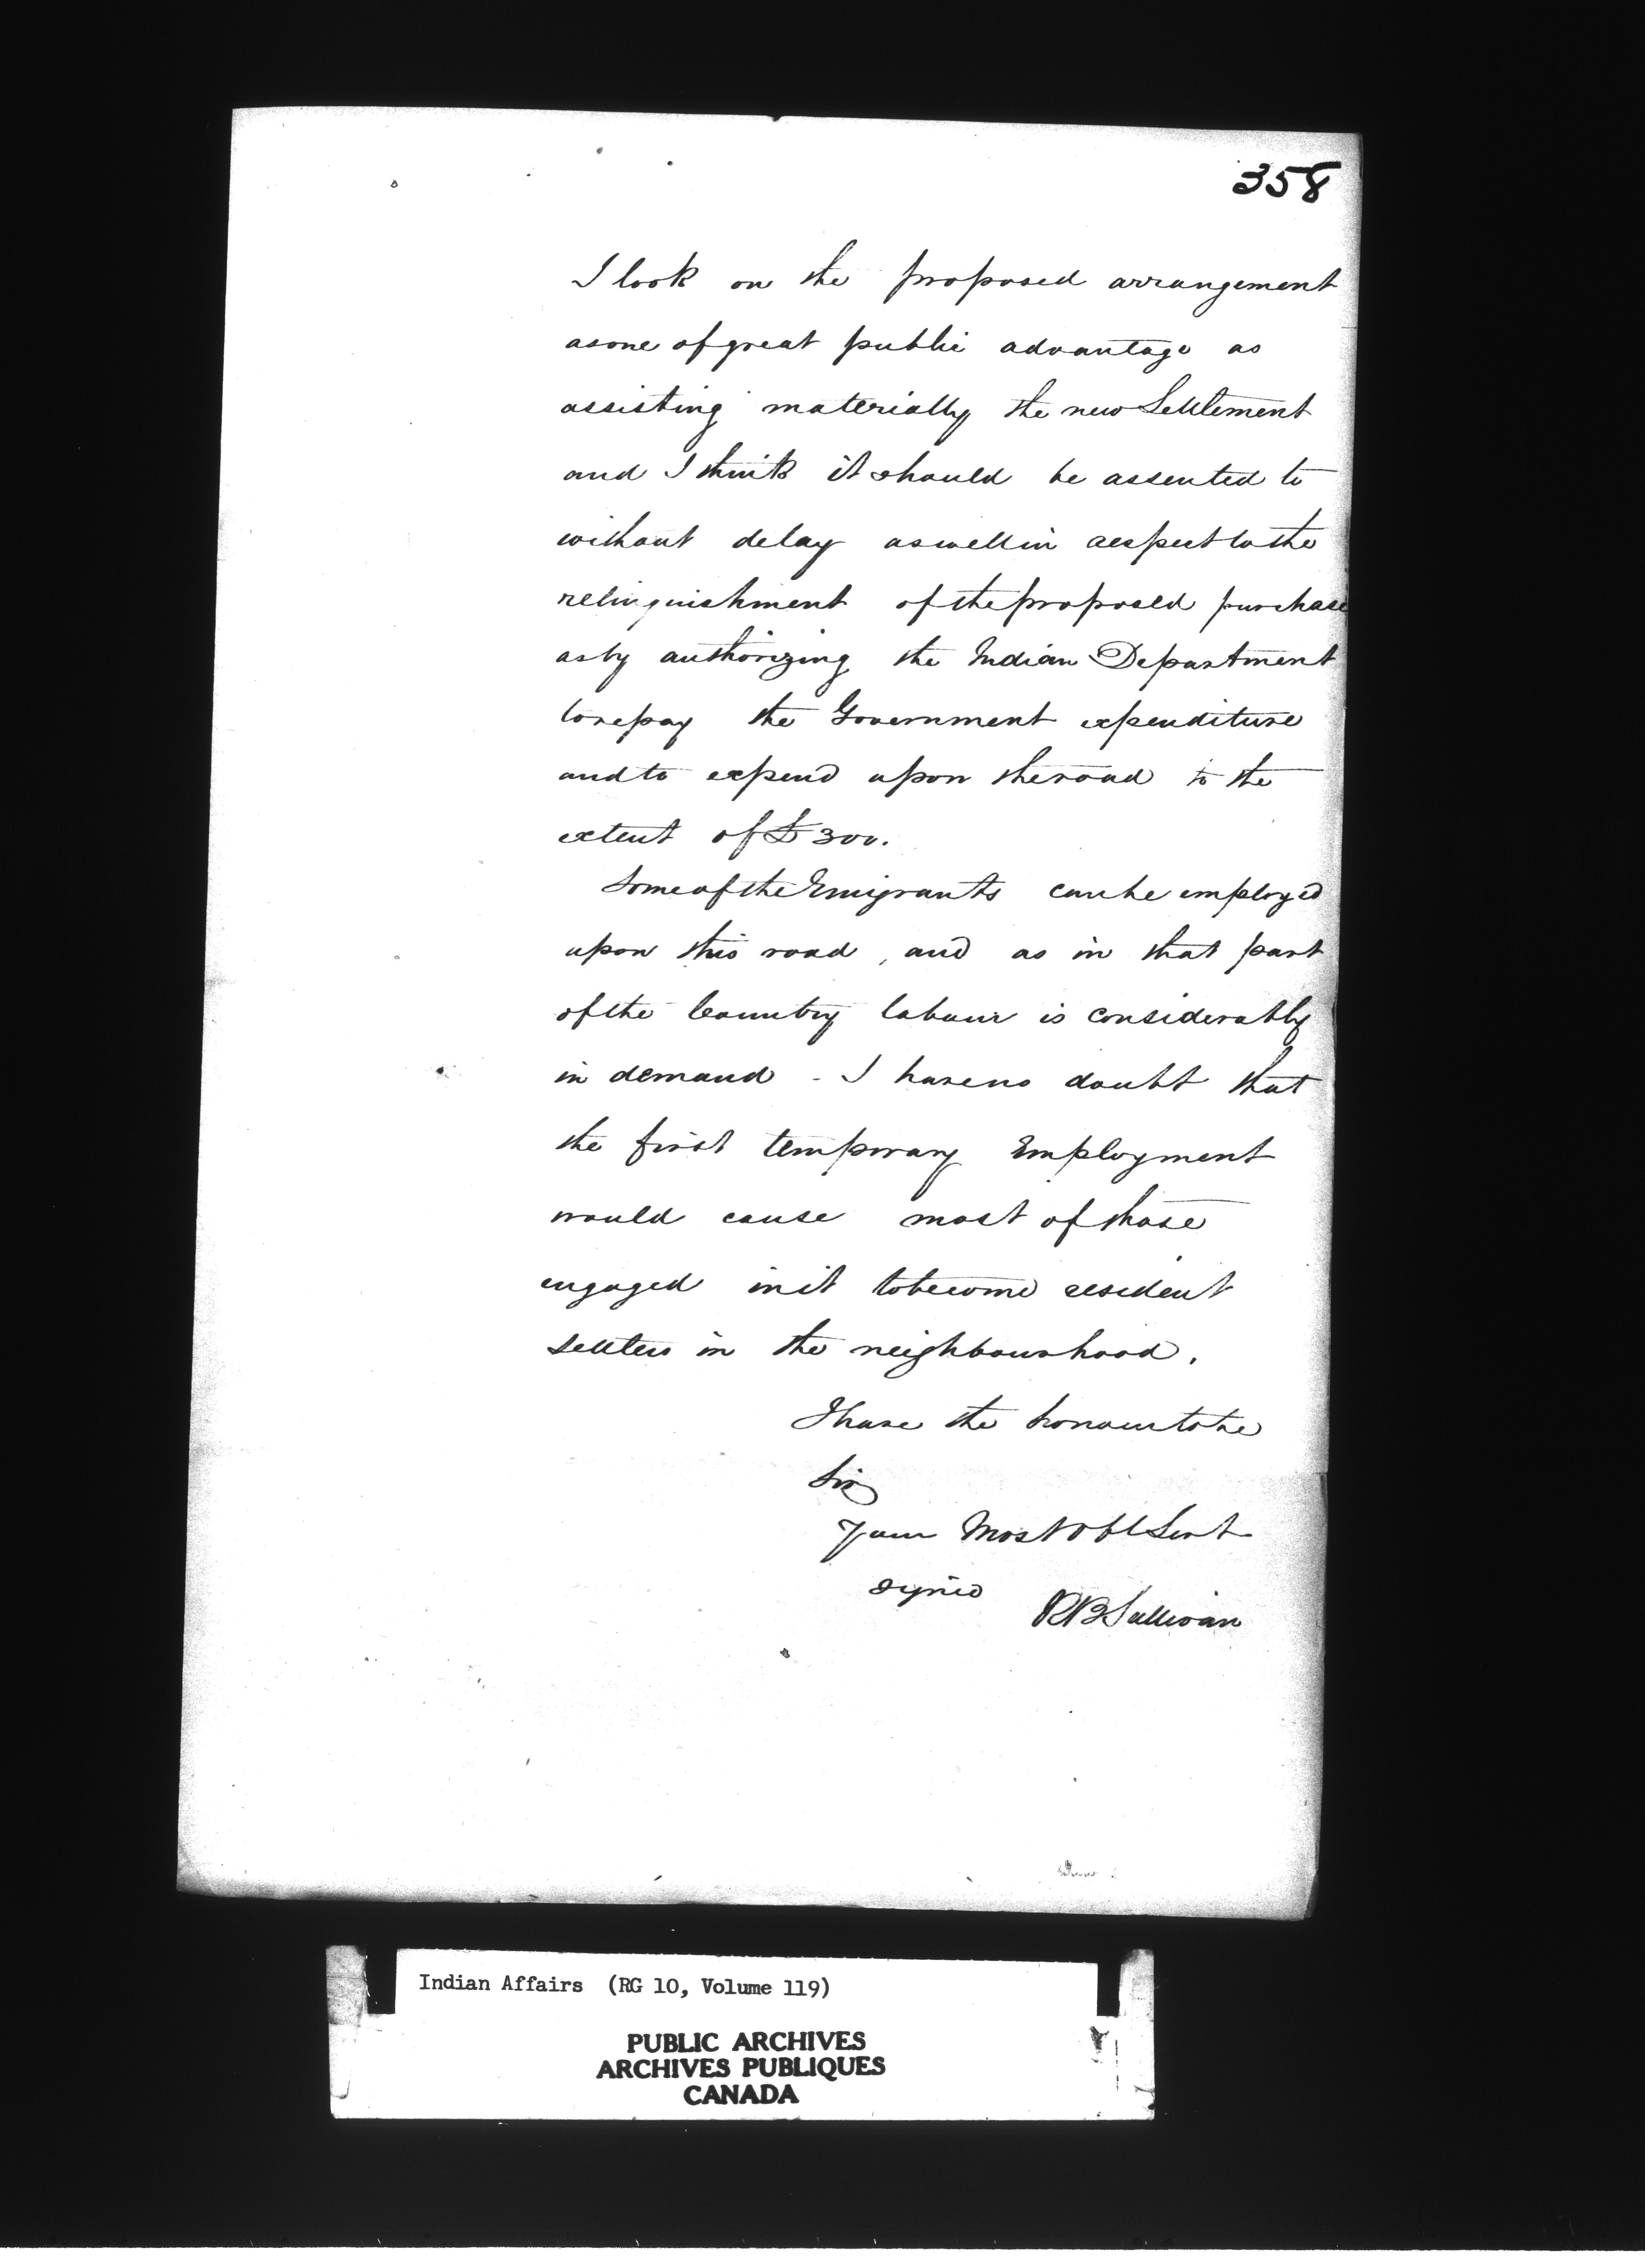 358
I look on the proposed arrangement
as one of great public advantage as
assisting materially the new Settlement
and I think it should be assented to
without delay as well in respect to the
relinquishment of the proposed purchase
as by authorizing the Indian Department
to repay the Government expenditure
and to expend upon the road to the
extent of £300.
Some of the Emigrants can be employed
upon this road, and as in that part
of the Country labour is considerably
in demand - I have no doubt that
the first temporary Employment
would cause most of those
engaged in it to become resident
settlers in the neighbourhood.
I have the honour to be
Sir
Your Most Obt Servt
Signed R B Sullivan
Indian Affairs (RG 10, Volume 119)
PUBLIC ARCHIVES
ARCHIVES PUBLIQUES
CANADA